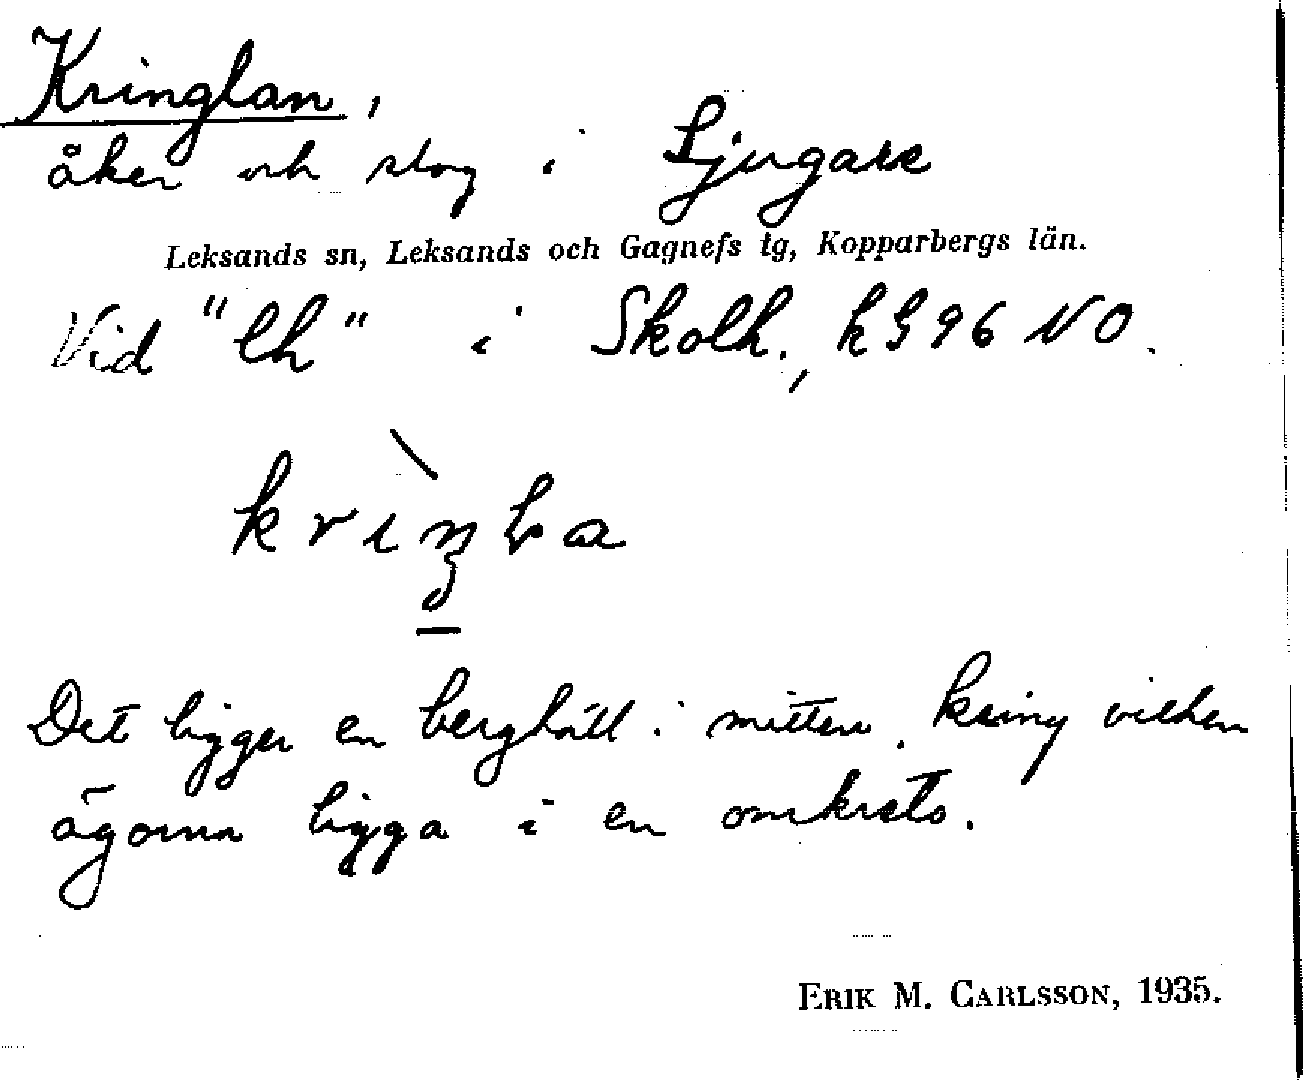 Kringlan,
åker och slog i Ljugare
Leksands sn, Leksands och Gagnefs tg, Kopparbergs län.
Vid "lh" i Skolh., k 996 NO.
Det ligger en berghäll i mitten, kring vilken
ägorna ligga i en omkrets.
ERIK M. CARLSSON, 1935.